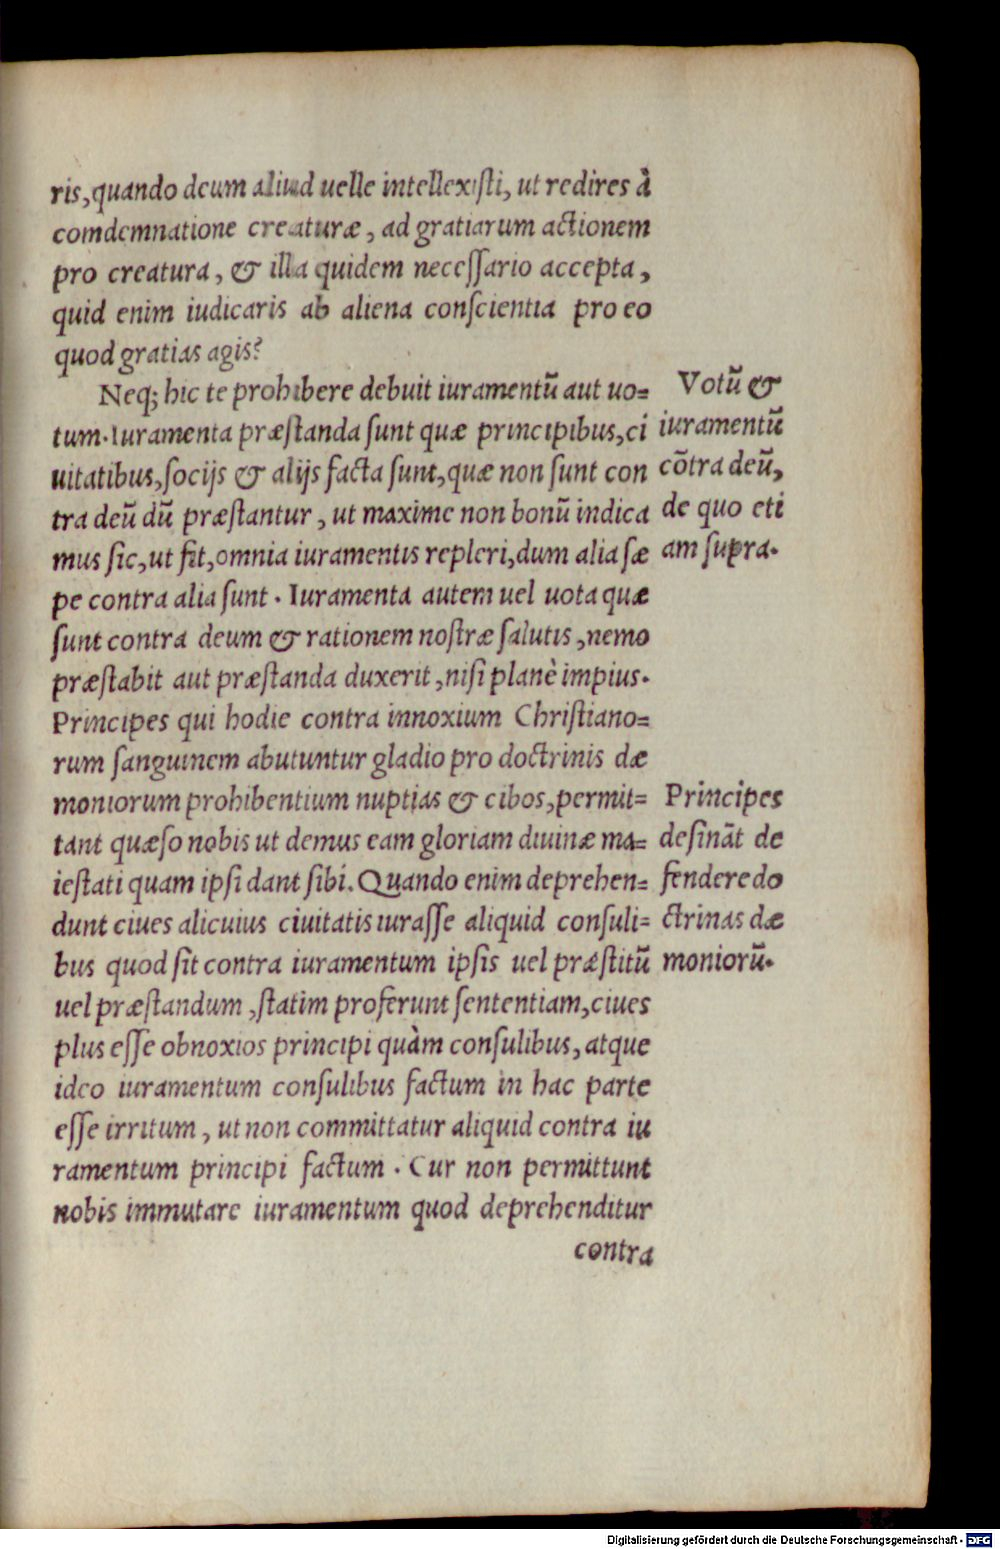 ris, quando deum aliud uelle intellexisti, ut redires à
comdemnatione creaturæ, ad gratiarum actionem
pro creatura, & illa quidem necessario accepta,
quid enim iudicaris ab aliena conscientia pro eo
quod gratias agis?
Neq; hic te prohibere debuit iuramentũ aut uo=
tum. Iuramenta præstanda sunt quæ principibus, ci
uitatibus, socijs & alijs facta sunt, quæ non sunt con
tra deũ dũ præstantur, ut maxime non bonũ indica
mus sic, ut fit, omnia iuramentis repleri, dum alia sæ
pe contra alia sunt. Iuramenta autem uel uota quæ
sunt contra deum & rationem nostræ salutis, nemo
præstabit aut præstanda duxerit, nisi planè impius.
Principes qui hodie contra innoxium Christiano=
rum sanguinem abutuntur gladio pro doctrinis dæ
moniorum prohibentium nuptias & cibos, permit=
tant quæso nobis ut demus eam gloriam diuinæ ma=
iestati quam ipsi dant sibi. Quando enim deprehen=
dunt ciues alicuius ciuitatis iurasse aliquid consuli=
bus quod sit contra iuramentum ipsis uel præstitũ
uel præstandum, statim proferunt sententiam, ciues
plus esse obnoxios principi quàm consulibus, atque
ideo iuramentum consulibus factum in hac parte
esse irritum, ut non committatur aliquid contra iu
ramentum principi factum. Cur non permittunt
nobis immutare iuramentum quod deprehenditur
contra
Votũ &
iuramentũ
cõtra deũ,
de quo eti
am supra.
Principes
desinãt de
fendere do
ctrinas dæ
moniorũ.
Digitalisierung gefördert durch die Deutsche Forschungsgemeinschaft - DFG